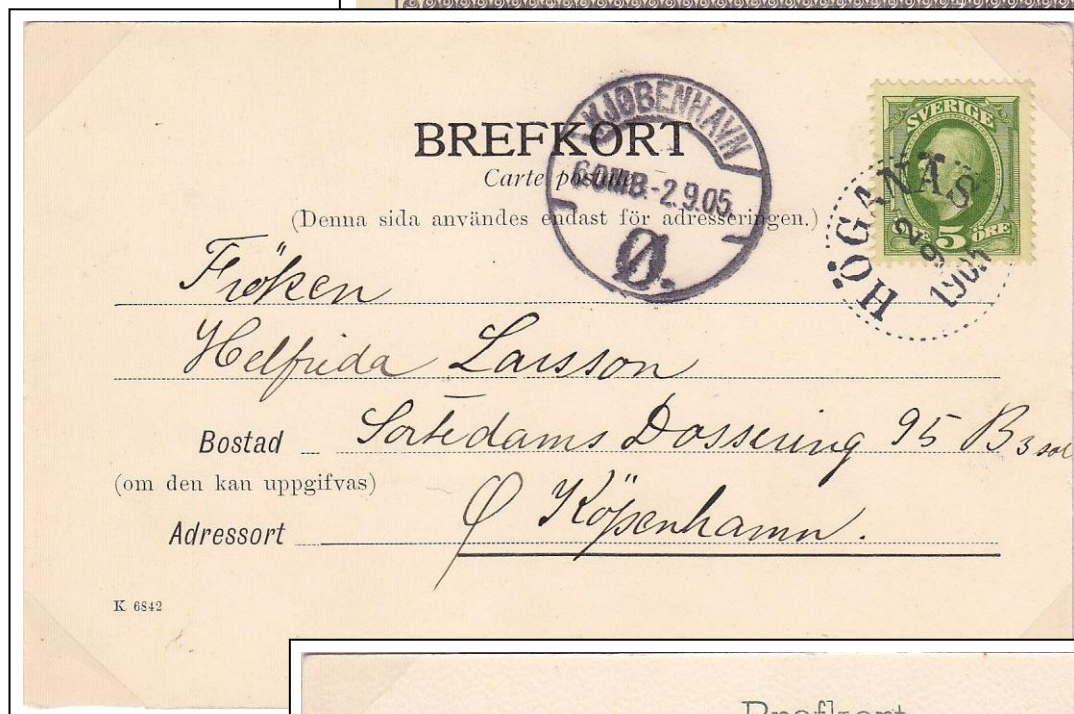 BREFKORT
Carte postale
(Denna sida användes endast för adresseringen.)
KJØBENHAVN
-2.9.05
Ø.
SVERIGE
5 ÖRE
HÖGANÄS
2
9
Fröken
Helfrida Larsson
Bostad Sortedams Dossering 95 B 3
(om den kan uppgifvas)
Adressort Ø Köpenhamn.
K 6842
Brefkort